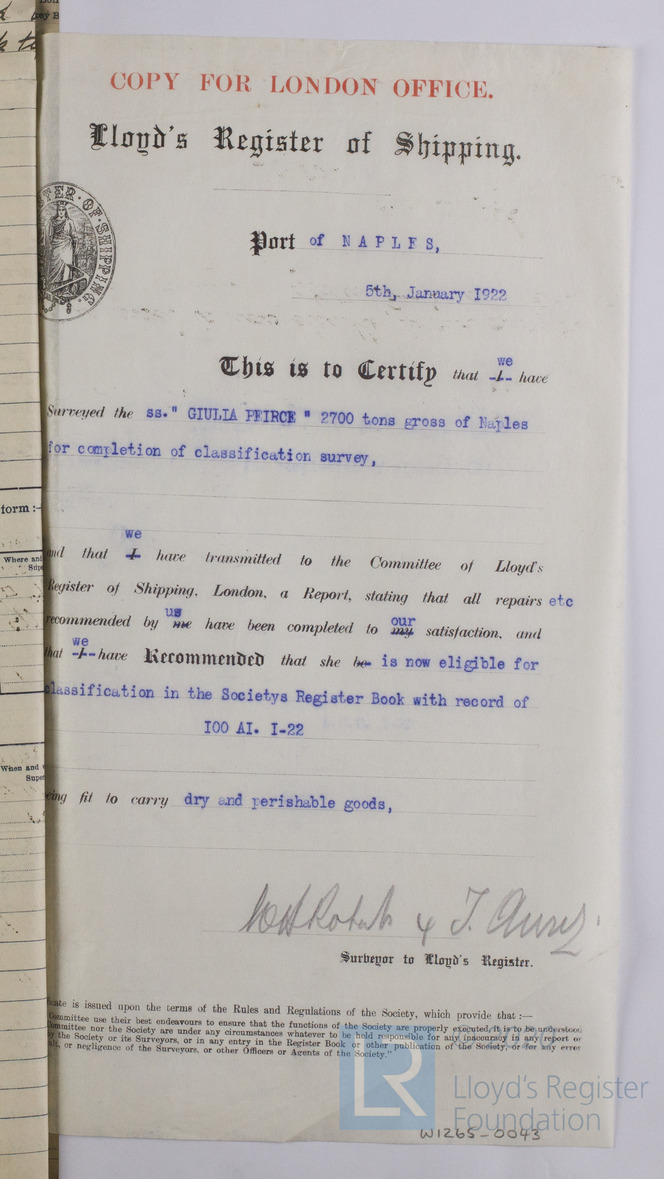 COPY FOR LONDON OFFICE.
Lloyd's Register of Shipping.
TER·OF·SHIPPING.
Port of NAPLES,
5th, January I922
we
This is to Certify that -I- have
Surveyed the ss." GIULIA PEIRCE " 2700 tons gross of Naples
for completion of classification survey,
we
and that I have transmitted to the Committee of Lloyd's
Register of Shipping, London, a Report, stating that all repairs etc
us our
recommended by me have been completed to my satisfaction, and
we
that -I- have Recommended that she be is now eligible for
classification in the Societys Register Book with record of
IOO AI. I-22
being fit to carry dry and perishable goods,
& T.
Surveyor to Lloyd's Register.
is issued upon the terms of the Rules and Regulations of the Society, which provide that :—
Committee use their best endeavours to ensure that the functions of the Society are properly executed, it is to be understood
Committee nor the Society are under any circumstances whatever to be held responsible for any inaccuracy in any report or
by the Society or its Surveyors, or in any entry in the Register Book or other publication of the Society, or for any error
or negligence of the Surveyors, or other Officers or Agents of the Society."
LR
Lloyd's Register
Foundation
W1265-0043
form :-
Where and
When and